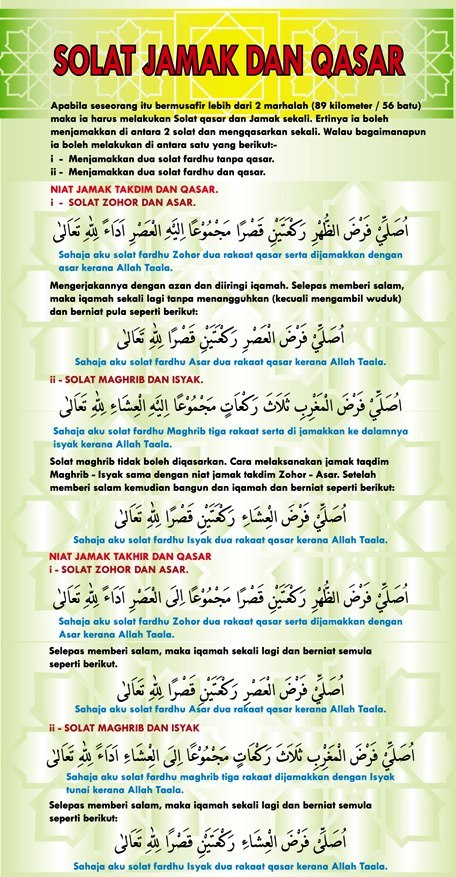 SOLAT JAMAK DAN QASAR
Apabila seseorang itu bermusafir lebih dari 2 marhalah (89 kilometer / 56 batu)
maka ia harus melakukan Solat qasar dan Jamak sekali. Ertinya ia boleh
menjamakkan di antara 2 solat dan mengqasarkan sekali. Walau bagaimanapun
ia boleh melakukan di antara satu yang berikut:-
i - Menjamakkan dua solat fardhu tanpa qasar.
ii - Menjamakkan dua solat fardhu dan qasar.
NIAT JAMAK TAKDIM DAN QASAR.
i - SOLAT ZOHOR DAN ASAR.
اُصَلِّيْ فَرْضَ الظُّهْرِ رَكْعَتَيْنِ قَصْرًا مَجْمُوْعًا اِلَيْهِ الْعَصْرِ اَدَاءً لِلّٰهِ تَعَالَى
Sahaja aku solat fardhu Zohor dua rakaat qasar serta dijamakkan dengan
asar kerana Allah Taala.
Mengerjakannya dengan azan dan diiringi iqamah. Selepas memberi salam,
maka iqamah sekali lagi tanpa menangguhkan (kecuali mengambil wuduk)
dan berniat pula seperti berikut:
اُصَلِّيْ فَرْضَ الْعَصْرِ رَكْعَتَيْنِ قَصْرًا لِلّٰهِ تَعَالَى
Sahaja aku solat fardhu Asar dua rakaat qasar kerana Allah Taala.
ii - SOLAT MAGHRIB DAN ISYAK.
اُصَلِّيْ فَرْضَ الْمَغْرِبِ ثَلَاثَ رَكْعَاتٍ مَجْمُوْعًا اِلَيْهِ الْعِشَاءِ لِلّٰهِ تَعَالَى
Sahaja aku solat fardhu Maghrib tiga rakaat serta di jamakkan ke dalamnya
isyak kerana Allah Taala.
Solat maghrib tidak boleh diqasarkan. Cara melaksanakan jamak taqdim
Maghrib - Isyak sama dengan niat jamak takdim Zohor - Asar. Setelah
memberi salam kemudian bangun dan iqamah dan berniat seperti berikut:
اُصَلِّيْ فَرْضَ الْعِشَاءِ رَكْعَتَيْنِ قَصْرًا لِلّٰهِ تَعَالَى
Sahaja aku solat fardhu Isyak dua rakaat qasar kerana Allah Taala.
NIAT JAMAK TAKHIR DAN QASAR
i - SOLAT ZOHOR DAN ASAR.
اُصَلِّيْ فَرْضَ الظُّهْرِ رَكْعَتَيْنِ قَصْرًا مَجْمُوْعًا اِلَى الْعَصْرِ اَدَاءً لِلّٰهِ تَعَالَى
Sahaja aku solat fardhu Zohor dua rakaat qasar serta dijamakkan dengan
Asar kerana Allah Taala.
Selepas memberi salam, maka iqamah sekali lagi dan berniat semula
seperti berikut.
اُصَلِّيْ فَرْضَ الْعَصْرِ رَكْعَتَيْنِ قَصْرًا لِلّٰهِ تَعَالَى
Sahaja aku solat fardhu Asar dua rakaat qasar kerana Allah Taala.
ii - SOLAT MAGHRIB DAN ISYAK
اُصَلِّيْ فَرْضَ الْمَغْرِبِ ثَلَاثَ رَكْعَاتٍ مَجْمُوْعًا اِلَى الْعِشَاءِ اَدَاءً لِلّٰهِ تَعَالَى
Sahaja aku solat fardhu maghrib tiga rakaat dijamakkan dengan Isyak
tunai kerana Allah Taala.
Selepas memberi salam, maka iqamah sekali lagi dan berniat semula
seperti berikut:
اُصَلِّيْ فَرْضَ الْعِشَاءِ رَكْعَتَيْنِ قَصْرًا لِلّٰهِ تَعَالَى
Sahaja aku solat fardhu Isyak dua rakaat qasar kerana Allah Taala.